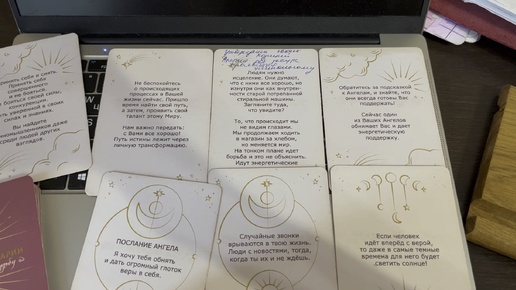 ринять себя и снять
совершенного
не бояться,
бояться своей силы,
консультации.
Быть уверенной в своих
словах и знаниях.
Вы найдете
единомышленников даже
среди людей других
взглядов.
Не беспокойтесь
о происходящих
процессах в Вашей
жизни сейчас. Пришло
время найти свой путь,
а затем, проявить свой
талант этому Миру.
Нам важно передать:
с Вами все хорошо!
Путь истины лежит через
личную трансформацию.
Людям нужно
исцеление. Они думают,
что с ними все хорошо, но
изнутри они как внутрен-
ности старой потрепанной
стиральной машины.
Загляните туда,
что увидите?
То, что происходит мы
не видим глазами.
Мы продолжаем ходить
в магазин за хлебом,
но меняется мир.
На тонком плане идет
борьба и это не объяснить.
Идут энергетические
Обратитесь за подсказкой
к Ангелам, и знайте, что
они всегда готовы Вас
поддержать!
Сейчас один
из Ваших Ангелов
обнимает Вас и дает
энергетическую
поддержку.
ПОСЛАНИЕ АНГЕЛА
Я хочу тебя обнять
и дать огромный глоток
веры в себя.
Случайные звонки
врываются в твою жизнь.
Люди с новостями, тогда,
когда ты их и не ждёшь.
Если человек
идёт вперёд с верой,
то даже в самые темные
времена для него будет
светить солнце!